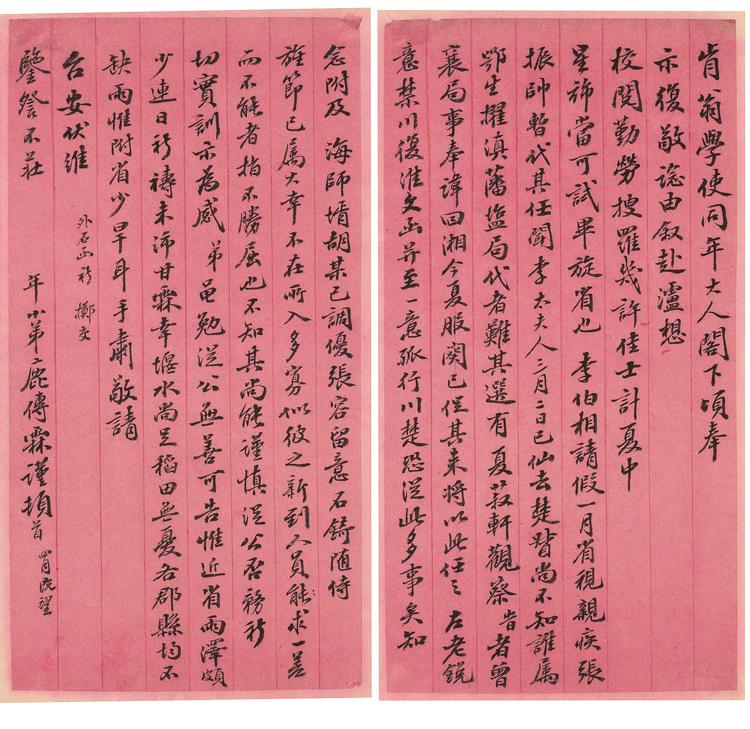 肯翁學使同年大人閣下頃奉
示復敬諗由叙赴瀘想
校閱勤勞搜羅幾許佳士計夏中
星旆當可試畢旋省也 李伯相請假一月省視親疾張
振帥暫代其任聞李太夫人三月二日已仙去楚督尚不知誰屬
鄂生擢滇藩鹽局代者難其選有夏菽軒觀察 昔者曾
襄局事奉諱回湘今夏服闋已促其來將以此任之 左老銳
意禁川復淮文函并至一意孤行川楚恐從此多事矣知
念附及 海師壻胡某已調優張容留意石錡隨侍
旌節已屬大幸不在所入多寡似彼之新到人員能求一差
而不能者指不勝屈也不知其尚能謹慎從公否務祈
切實訓示為感 弟黽勉從公無善可告惟近省雨澤頗
少連日祈禱未沛甘霖幸堰水尚足稻田無憂各郡縣均不
缺雨惟附省少旱耳手肅敬請
台安伏維
外石函祈 擲交
鑒詧不莊
年小弟鹿傳霖謹頓首 四月既望